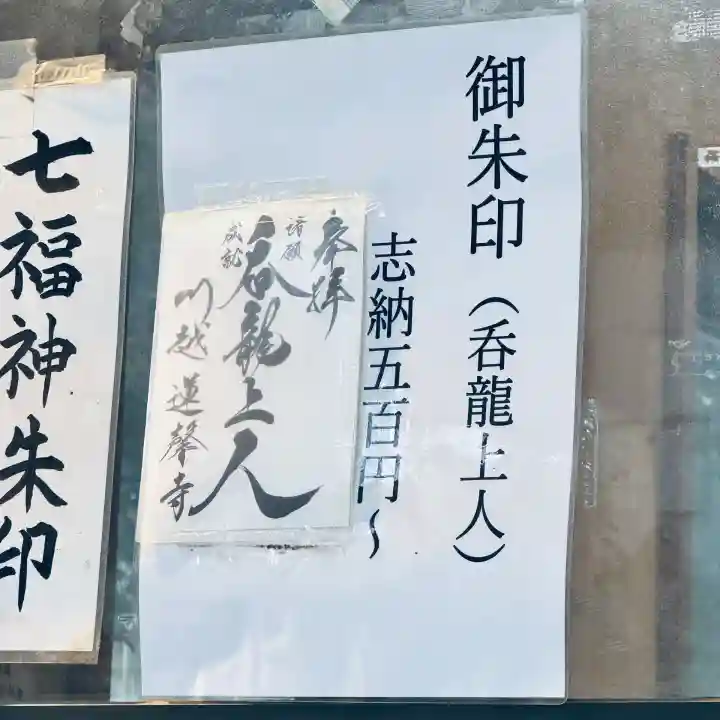 御朱印(呑龍上人)
志納五百円~
奉拝
諸願
成就
呑龍上人
川越蓮馨寺
七福神朱印